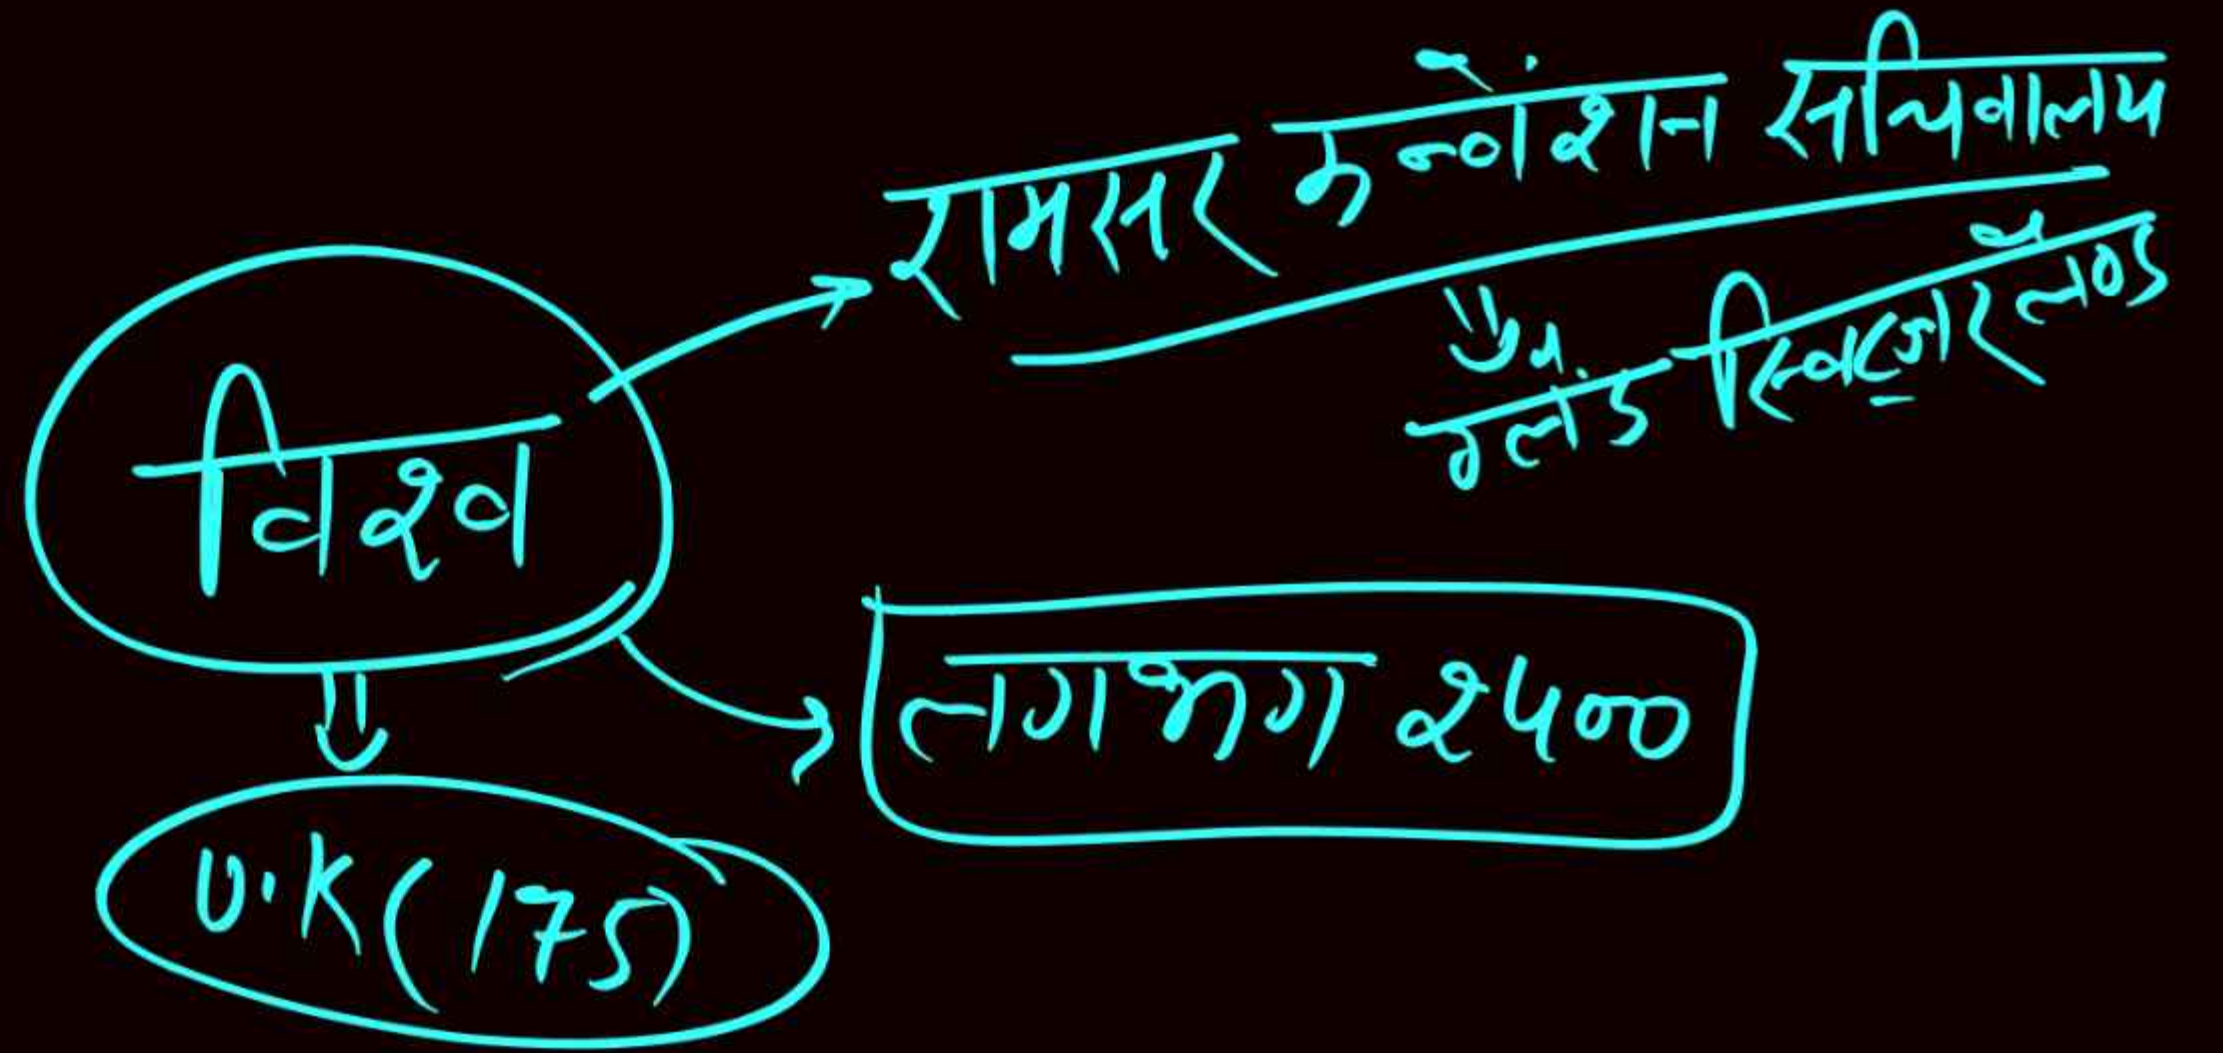 रामसर कन्वेंशन सचिवालय
ग्लंड स्विट्जरलैण्ड
विश्व
लगभग २५००
U.K (175)